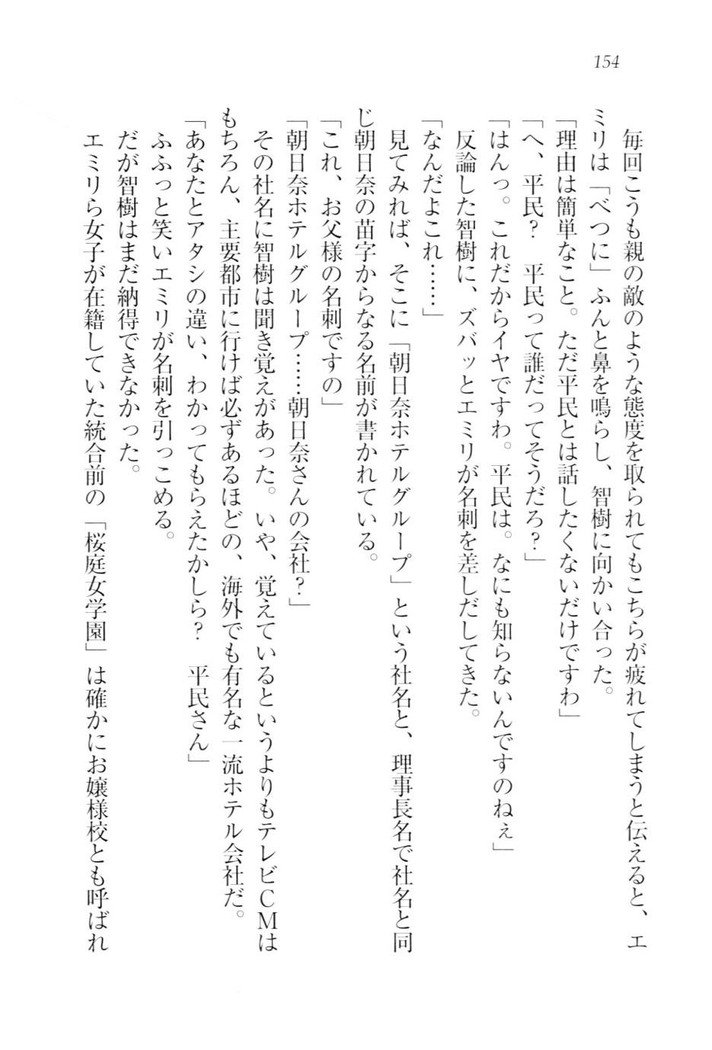 154
　毎回こうも親の敵のような態度を取られてもこちらが疲れてしまうと伝えると、エ
ミリは「べつに」ふんと鼻を鳴らし、智樹に向かい合った。
「理由は簡単なこと。ただ平民とは話したくないだけですわ」
「へ、平民？　平民って誰だってそうだろ？」
「はんっ。これだからイヤですわ。平民は。なにも知らないんですのねぇ」
　反論した智樹に、ズバッとエミリが名刺を差しだしてきた。
「なんだよこれ……」
　見てみれば、そこに「朝日奈ホテルグループ」という社名と、理事長名で社名と同
じ朝日奈の苗字からなる名前が書かれている。
「これ、お父様の名刺ですの」
「朝日奈ホテルグループ……朝日奈さんの会社？」
　その社名に智樹は聞き覚えがあった。いや、覚えているというよりもテレビＣＭは
もちろん、主要都市に行けば必ずあるほどの、海外でも有名な一流ホテル会社だ。
「あなたとアタシの違い、わかってもらえたかしら？　平民さん」
　ふふっと笑いエミリが名刺を引っこめる。
だが智樹はまだ納得できなかった。
　エミリら女子が在籍していた統合前の「桜庭女学園」は確かにお嬢様校とも呼ばれ